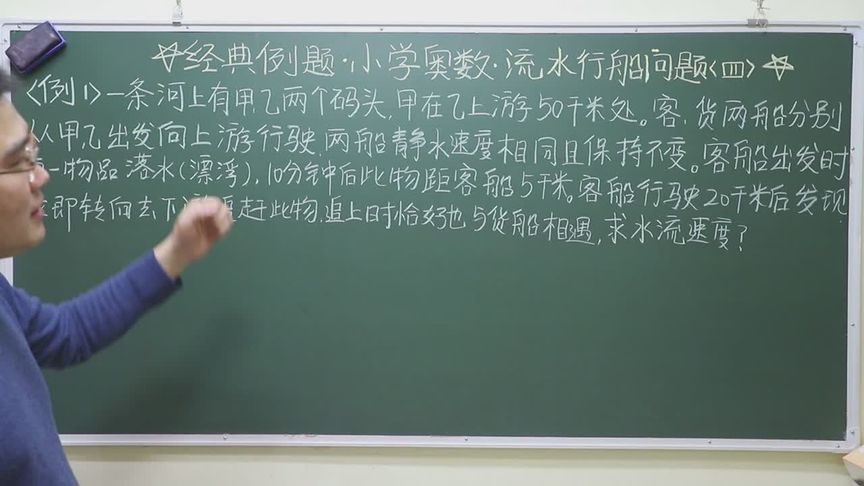 ☆经典例题·小学奥数·流水行船问题<四>☆
<例1>一条河上有甲乙两个码头,甲在乙上游50千米处。客、货两船分别
从甲,乙出发向上游行驶,两船静水速度相同且保持不变。客船出发时
一物品落水(漂浮),10分钟后此物距客船5千米。客船行驶20千米后发现
即转向去下追赶此物,追上时恰好也与货船相遇,求水流速度?